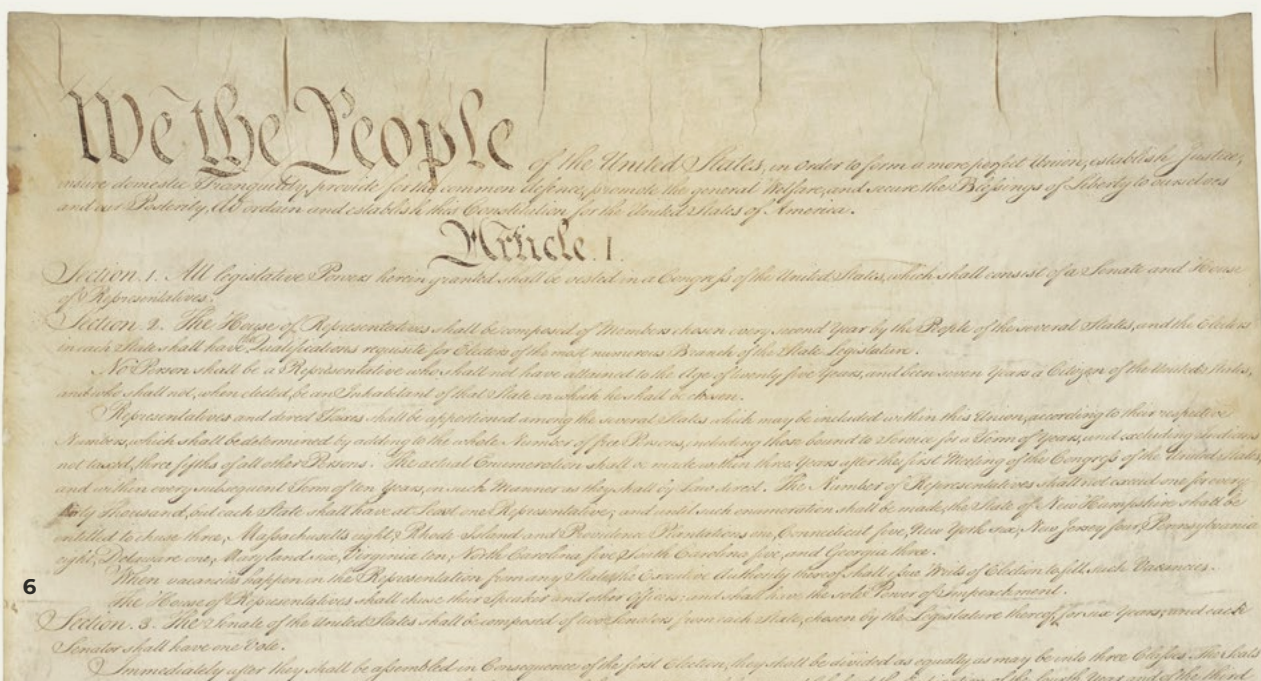 We the People of the United States, in Order to form a more perfect Union, establish Justice,
insure domestic Tranquility, provide for the common defence, promote the general Welfare, and secure the Blessings of Liberty to ourselves
and our Posterity, do ordain and establish this Constitution for the United States of America.
Article. I.
Section. 1. All legislative Powers herein granted shall be vested in a Congress of the United States, which shall consist of a Senate and House
of Representatives.
Section. 2. The House of Representatives shall be composed of Members chosen every second Year by the People of the several States, and the Electors
in each State shall have the Qualifications requisite for Electors of the most numerous Branch of the State Legislature.
No Person shall be a Representative who shall not have attained to the Age of twenty five Years, and been seven Years a Citizen of the United States,
and who shall not, when elected, be an Inhabitant of that State in which he shall be chosen.
Representatives and direct Taxes shall be apportioned among the several States which may be included within this Union, according to their respective
Numbers, which shall be determined by adding to the whole Number of free Persons, including those bound to Service for a Term of Years, and excluding Indians
not taxed, three fifths of all other Persons. The actual Enumeration shall be made within three Years after the first Meeting of the Congress of the United States,
and within every subsequent Term of ten Years, in such Manner as they shall by Law direct. The Number of Representatives shall not exceed one for every
thirty Thousand, but each State shall have at Least one Representative; and until such enumeration shall be made, the State of New Hampshire shall be
entitled to chuse three, Massachusetts eight, Rhode-Island and Providence Plantations one, Connecticut five, New-York six, New Jersey four, Pennsylvania
eight, Delaware one, Maryland six, Virginia ten, North Carolina five, South Carolina five, and Georgia three.
When vacancies happen in the Representation from any State, the Executive Authority thereof shall issue Writs of Election to fill such Vacancies.
6
The House of Representatives shall chuse their Speaker and other Officers; and shall have the sole Power of Impeachment.
Section. 3. The Senate of the United States shall be composed of two Senators from each State, chosen by the Legislature thereof, for six Years; and each
Senator shall have one Vote.
Immediately after they shall be assembled in Consequence of the first Election, they shall be divided as equally as may be into three Classes. The Seats
of the fourth Year, and of the third